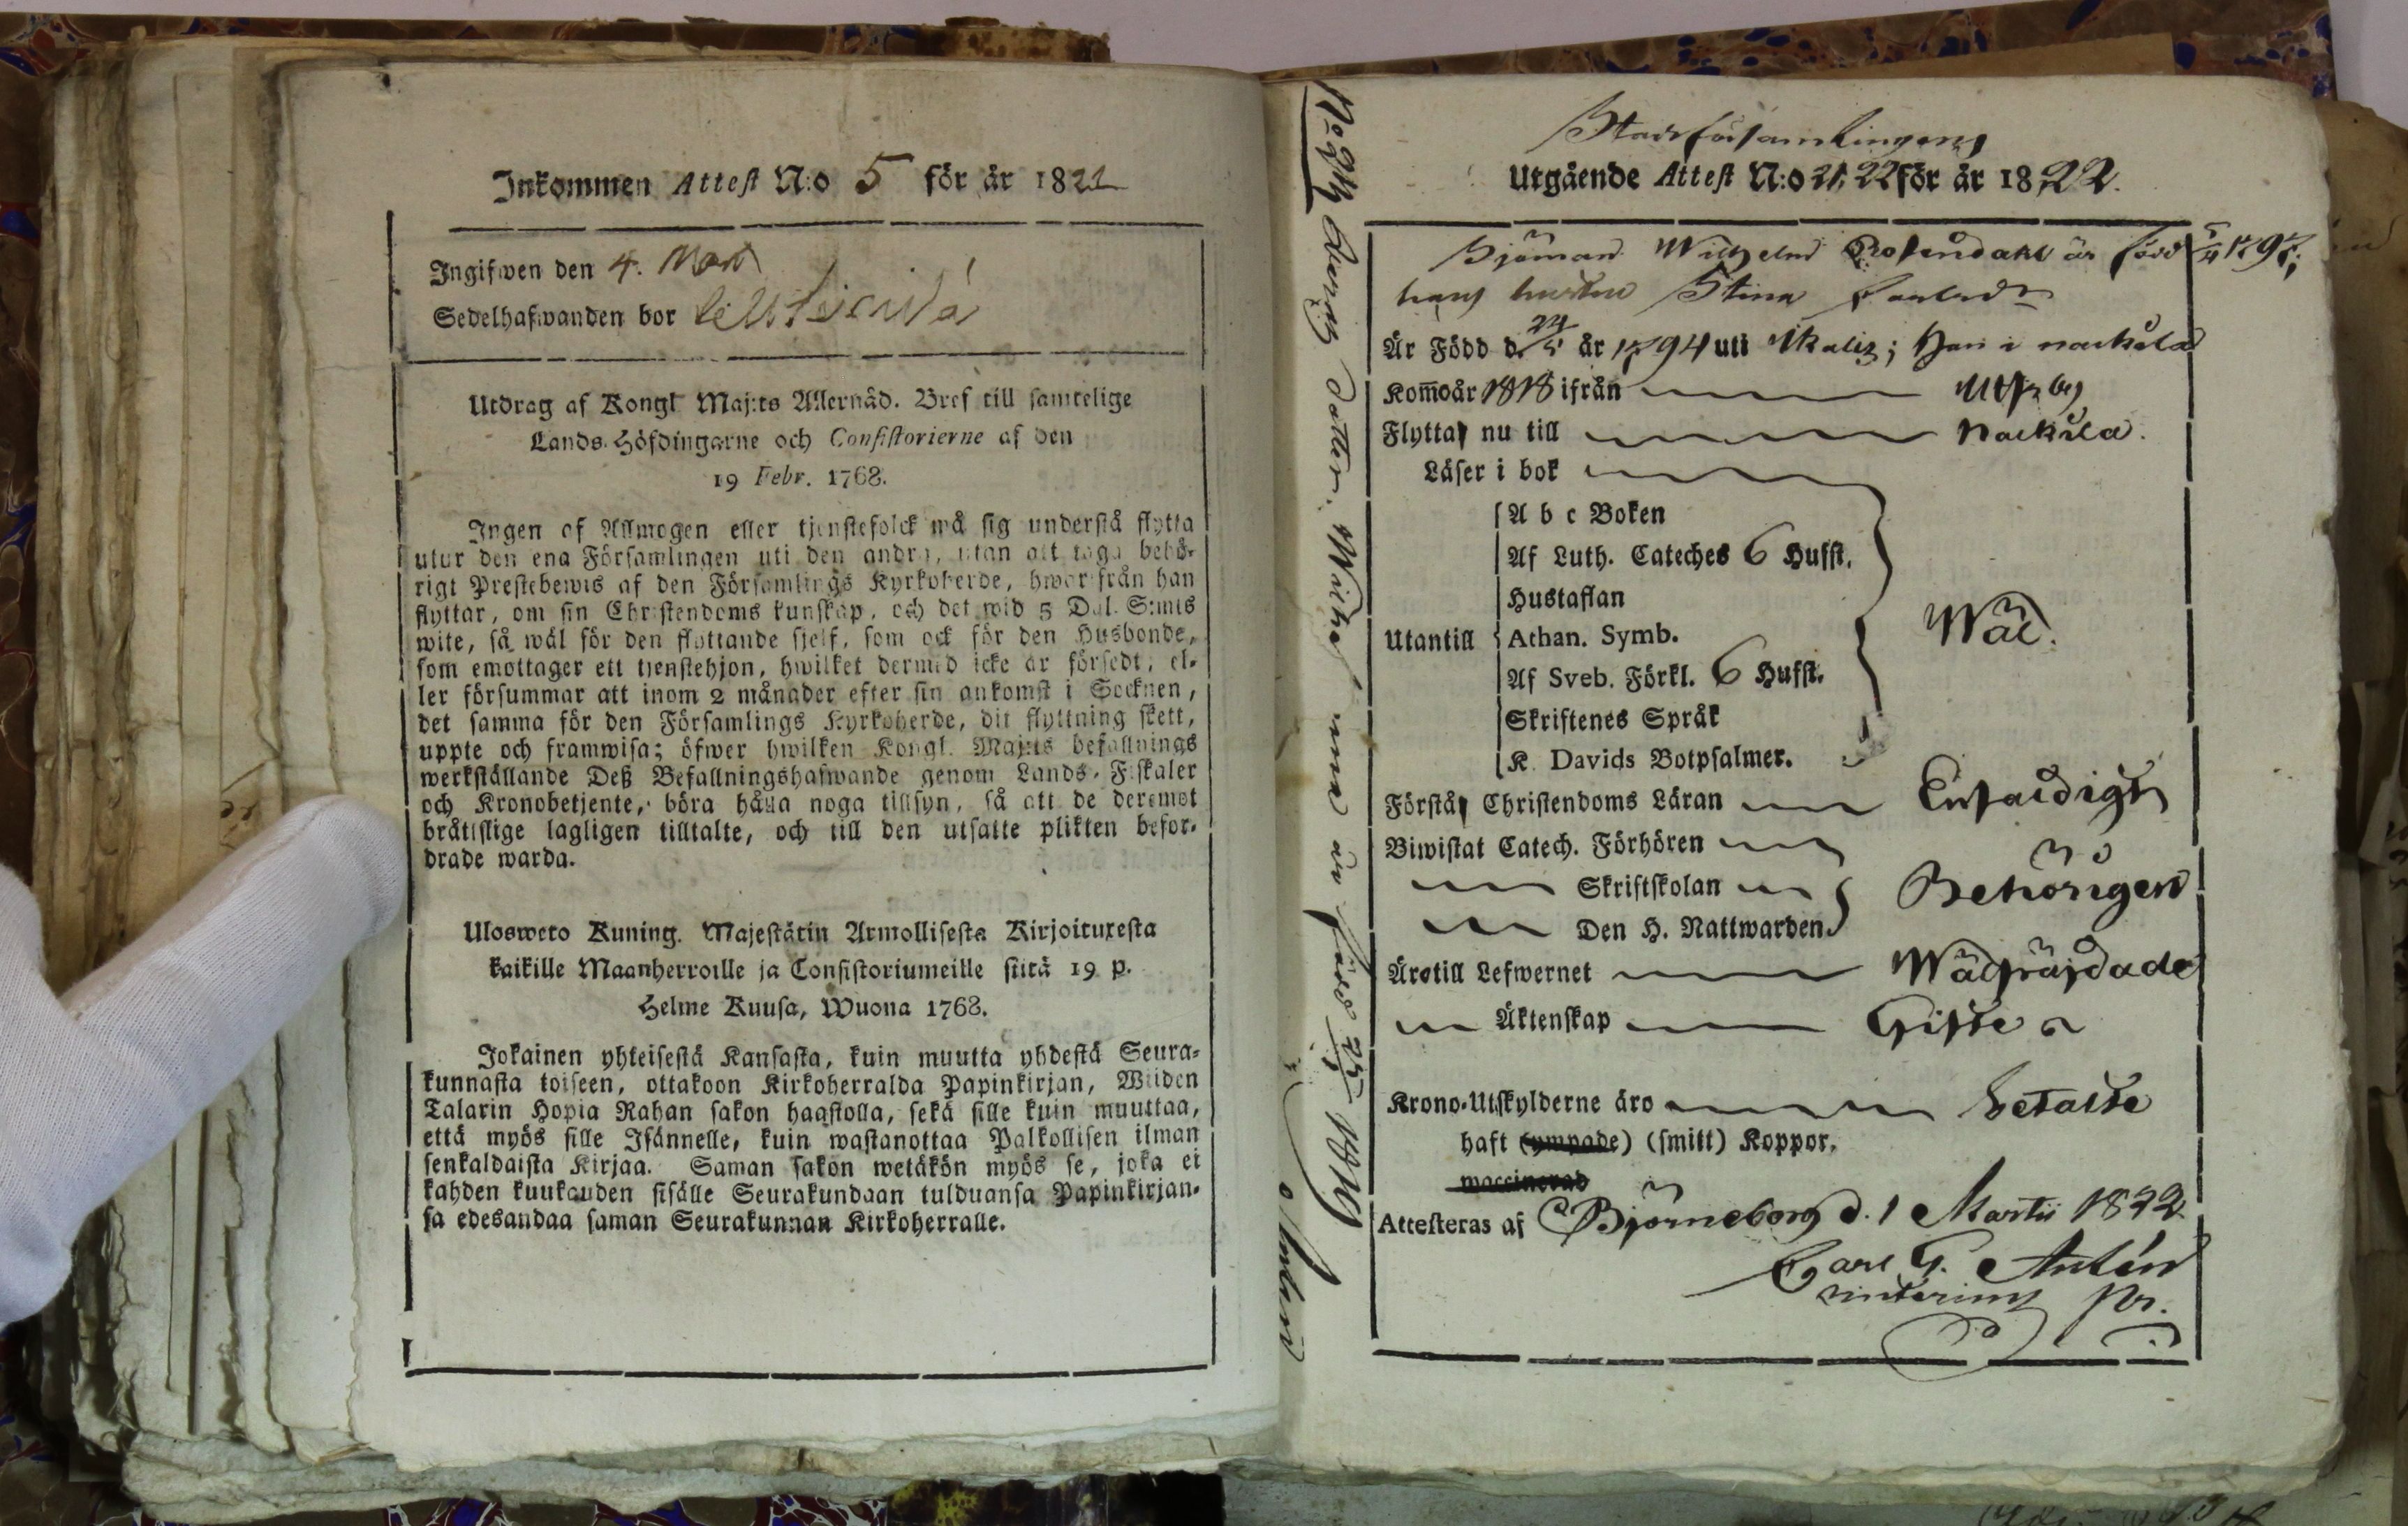 Inkommen Attest N:o 5 för år 1822
Ingifwen den 4. Mart
Sedelhafwanden bor
Utdrag af Kongl Maj:ts Allernåd. Bref till samtelige
Lands-Höfdingarne och Consistorierne af den
19 Febr. 1768.
Ingen af Allmogen eller tjenstefolck må sig understå flytta
utur den ena Församlingen uti den andra, utan att taga behö-
rigt Prestebewis af den Församlings Kyrkoherde, hwarifrån han
flyttar, om sin Christendoms kunskap, och det wid 5 Dal. S:mts
wite, så wäl för den flyttande sjelf, som ock för den Husbonde,
som emottager ett tjenstehjon, hwilket dermed icke är försedt; el-
ler försummar att inom 2 månader efter sin ankomst i Socknen,
det samma för den Församlings Kyrkoherde, dit flyttning skett,
uppte och framwisa; öfwer hwilken Kongl. Maj:ts befallnings
werkställande Deß Befallningshafwande genom Lands-Fiskaler
och Kronobetjente, böra hålla noga tillsyn, så att de deremot
bråttslige lagligen tilltalte, och till den utsatte plikten befor-
drade warda.
Ulosweto Kuning. Majestätin Armollisesta Kirjoituxesta
kaikille Maanherroille ja Consistoriumeille siitä 19 p.
Helme Kuusa, Wuona 1768.
Jokainen yhteisestä Kansasta, kuin muutta yhdestä Seura-
kunnasta toiseen, ottakoon Kirkoherralda Papinkirjan, Wiiden
Talarin Hopia Rahan sakon haastolla, sekä sille kuin muuttaa,
että myös sille Isännelle, kuin wastanottaa Palkollisen ilman
senkaldaista Kirjaa. Saman sakon wetäkön myös se, joka ei
kahden kuukauden sisälle Seurakundaan tulduansa Papinkirjan-
sa edesandaa saman Seurakunnan Kirkoherralle.
Stadsförsamlingens
Utgående Attest N:o 21, 22 för år 1822.
Sjöman Wilhelm Rosendahl är född
hans hustru Stina
Är Född d. 24/5 år 1794 uti Ikalis; Han i nackila
Kom̄ år 1818 ifrån Ulfsby
Flytta nu till Nackila.
Läser i bok
Utantill
A b c Boken
Af Luth. Cateches 6 Hufst.
Hustaflan
Athan. Symb.
Af Sveb. Förkl. 6 Hufst.
Skriftenes Språk
K. Davids Botpsalmer.
Wäl.
Förstå Christendoms Läran Enfaldigt
Biwistat Catech. Förhören
Skriftskolan Behörigen
Den H. Nattwarden
Äro till Lefwernet Wälfräjdade
Äktenskap Gifte
Krono-Utskylderne äro betalte
haft (ympade) (smitt) Koppor.
waccinerad
Attesteras af Björneborg d. 1 Martii 1822
Carl G.
interims Pr.
dotter
född 1819